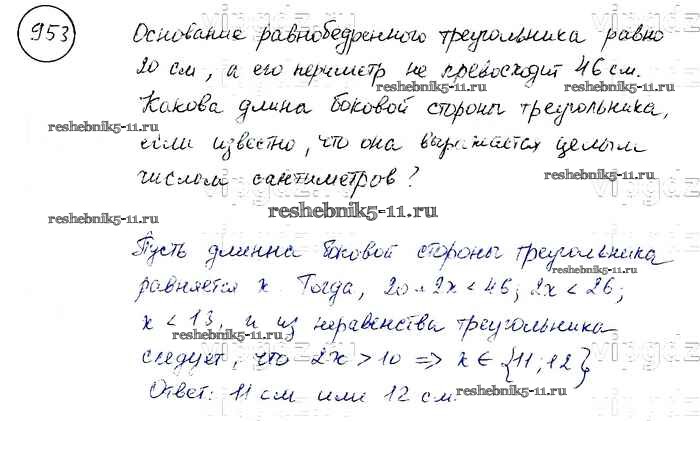 953
Основание равнобедренного треугольника равно
20 см, а его периметр не превосходит 46 см.
Какова длина боковой стороны треугольника,
reshebnik5-11.ru
reshebnik5-11.ru
если известно, что она выражается целым
числом сантиметров?
reshebnik5-11.ru
reshebnik5-11.ru
reshebnik5-11.ru
Пусть длинна боковой стороны треугольника
равняется x. Тогда, 20+2x < 46; 2x < 26;
reshebnik5-11.ru
x < 13, и из неравенства треугольника
следует, что 2x > 10 => x ∈ {11; 12}
Ответ: 11 см или 12 см.
reshebnik5-11.ru